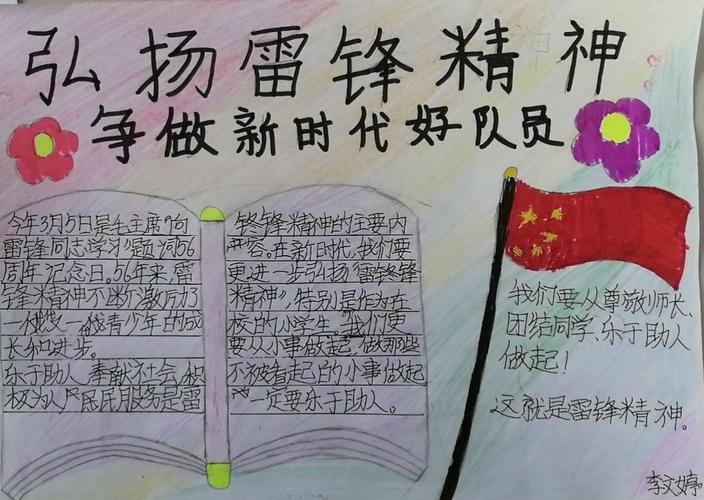 弘扬雷锋精神
争做新时代好队员
今年3月5日是毛主席"向
雷锋同志学习"题词56
周年纪念日。56年来,雷
锋精神不断激励
一代又一代青少年的成
长和进步。
乐于助人 奉献社会,积
极为人民服务是雷
锋精神的主要内
容。在新时代,我们要
更进一步弘扬"雷锋
精神",特别是作为在
校的小学生,我们更
要从小事做起,做那些
不被看起的小事做起
一定要乐于助人。
我们要从尊敬师长、
团结同学、乐于助人
做起!
这就是雷锋精神。
李文婷